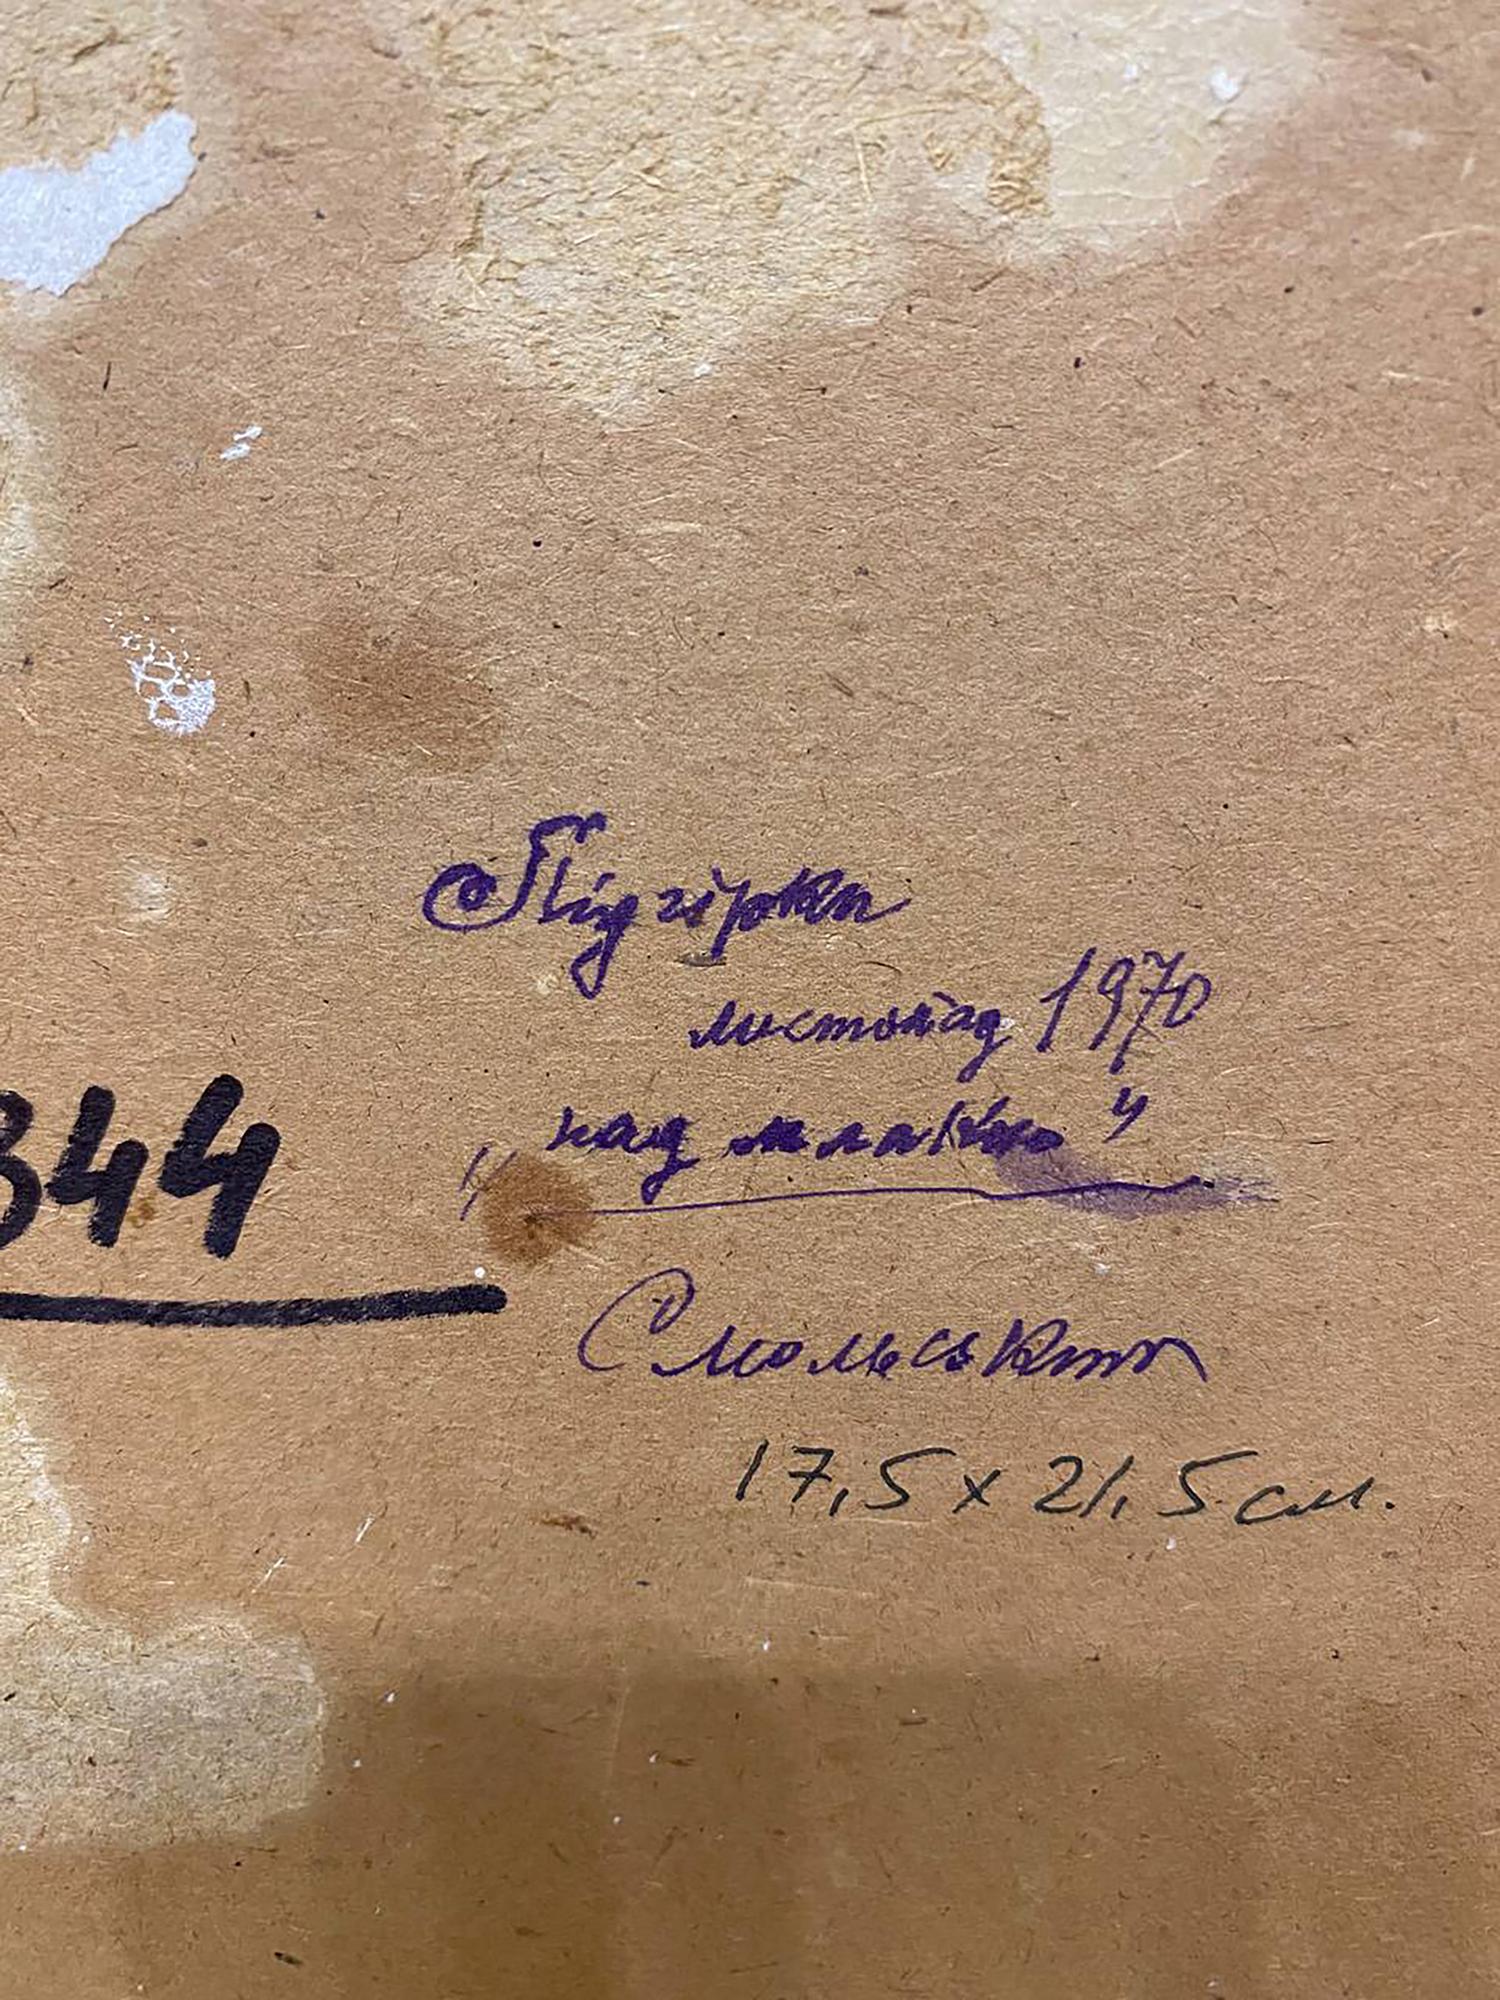 Підгірки
листопад 1970
344
„над млакою"
Смольський
17,5 х 21,5 см.